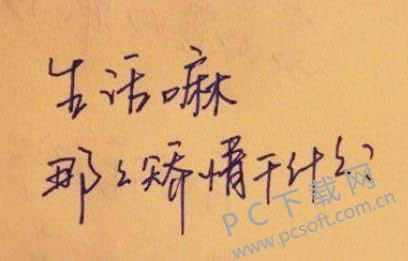 生活嘛
那么矫情干什么
PC下载网
www.pcsoft.com.cn